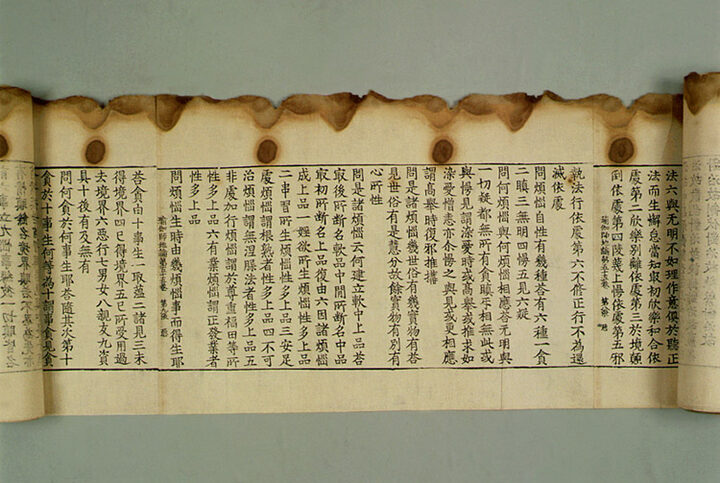 法六與無明不如理作意俱於聽正
法而生懈怠當知依初欲樂和合依
處第二欲樂別離依處第三於境顛
倒依處第四義上慢依處第五邪
瑜伽師地論第五十五卷
執法行依處第六不脩正行不為還
滅依處
問煩惱自性有幾種荅有六種一貪
二瞋三無明四慢五見六疑
問何煩惱與何煩惱相應荅無明與
一切疑都無所有貪瞋乎相無此或
與慢見謂染愛時或高舉或推求如
染愛憎恚亦尒慢之與見或更相應
謂髙舉時復邪推搆
問是諸煩惱幾世俗有幾實物有荅
見世俗有是慧分故餘實物有別有
心所性
問是諸煩惱云何建立軟中上品荅
最後所斷名軟品中閒所斷名中品
最初所斷名上品復由六因諸煩惱
成上品一欲所生煩惱性多上品
二串習所生煩惱性多上品三安足
處煩惱謂根熟者性多上品四不可
治煩惱謂無涅槃法者性多上品五
非處加行煩惱謂於尊重福田等所
性多上品六有業煩惱謂正發業者
性多上品
問煩惱生時由幾煩惱事而得生耶
瑜伽師地論第五十五卷
荅貪由十事生一取蘊二諸見三未
得境界四已得境界五已所受用過
去境界六惡行七男女八親友九資
具十後有及無有
問何貪於何事生耶荅隨其次第十
貪於十事生何等為十謂事貪見貪